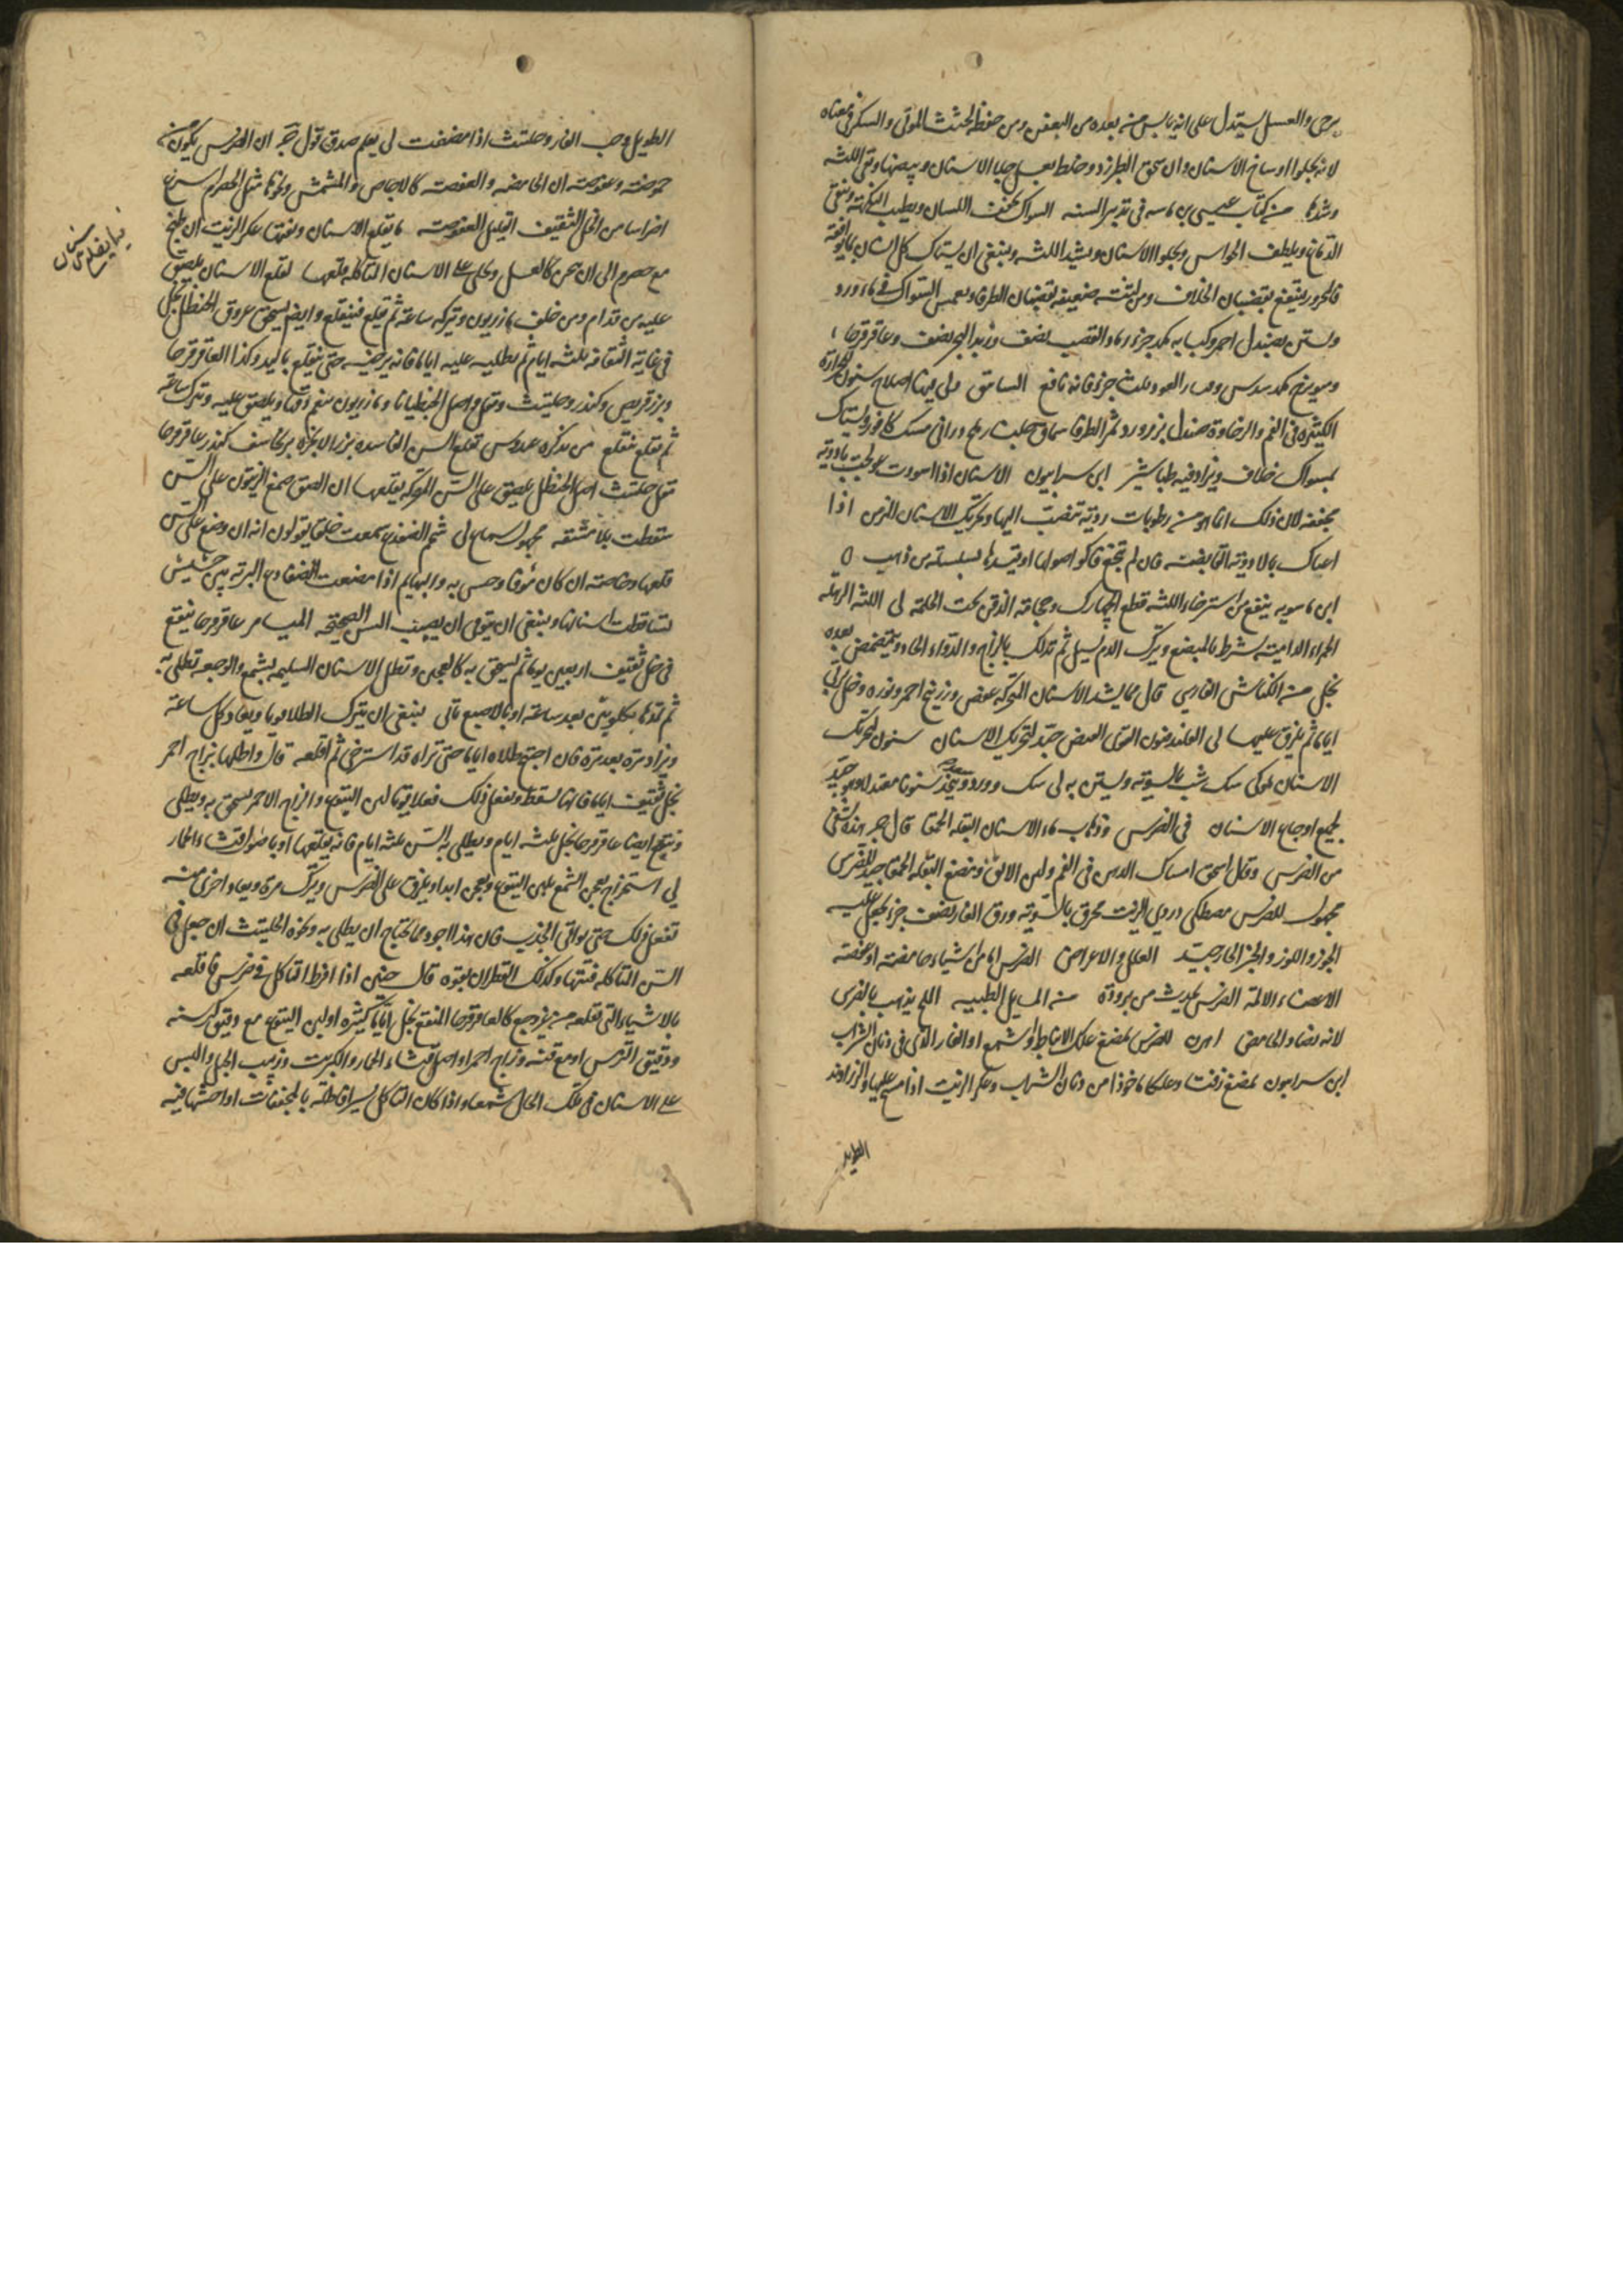 يرخى والعسل يستدل على انه يابس منه بعده من العفن ومن حفظ لجثث الموتى والسكر فى معناه
لانه يجلوا اوساخ الاسنان وان سحق الطبرزد وخلط بعسل جلا الاسنان وبيضها ونقى اللثه
وشدها من كتاب عيسى بن ماسه فى تدبير السنه السواك يجفف اللسان ويطيب النكهة وينقى
الدماغ ويلطف الحواس ويجلوا الاسنان ويشد اللثه وينبغى ان يستاك كل انسان بما يوافقه
فالمحرور ينتفع بقضبان الخلاف ومن لثته ضعيفه بقضبان الطرفا ويغمس السواك فى ماء ورد
ويستن بصندل احمر وكبابه جزء رماد القصب نصف وزبد البحر نصف وعاقرقرحا
وميويزج سدس العود ثلث جزء فانه نافع لى اصلاح سنون للحرارة
الكثيره فى الفم والرخاوة صندل بزر ورد ثمر الطرفا سماق مسك كافور ويستاك
بمسواك خلاف ويزاد فيه طباشير ابن سرابيون الاسنان اذا اسودت عولجت بادوية
مجففه لان ذلك انما هو من رطوبات رديه تنصب اليها وتحريك الاسنان المزمن اذا
اعياك بالادوية القابضه فان لم تنجع فاكو اصولها او تشدها بسلسله من ذهب
ابن ماسويه ينفع من استرخاء اللثه قطع الجهارك وحجامة الذقن تحت الحلمة لى اللثه الرهله
الحمراء الداميه يشرط بالمبضع ويترك الدم يسيل ثم تدلك بالزاج والدواء الحاد ويتمضمض بعده
بخل من الكناش الفارسى قال مما يشد الاسنان المتحركه عفص وزرنيخ احمر ونوره وخل
اياما ثم يلزق عليها لى العفص جيد لتحريك الاسنان سنون لتحريك
الاسنان سك شب بالسويه ويستن به لى سك وورد ويتخذ سنونا جيد
لجميع اوجاع الاسنان فى الضرس وذهاب ماء الاسنان البقله الحمقا قال هذه تشفى
من الضرس وقال اسحق امساك الدهن فى الفم ولبن الاتن ومضغ البقله الحمقا جيد للضرس
مجهول للضرس مصطكى دردى الزيت محرق بالسويه ورق الغار نصف جزء يجعل عليه
الجوز واللوز والخبز الحار جيد العلل والاعراض الضرس اما من اشياء حامضه او عفصه
الاعضاء الالمة الضرس يحدث من بروده من المسايل الطبيه الملح يذهب بالضرس
لانه يضاد الحامض اهرن للضرس يمضغ علك الانباط او شمع او القار الذى فى دنان الشراب
ابن سرابيون يمضغ زفت وعلكا ماخوذا من دنان الشراب وعكر الزيت اذا مسح عليها والزراوند
الطويل
الطويل وحب الغار وحلتيت اذا مضغت لى يعلم صدق قول ان الضرس يكون من
حموضه وعفوصه ان الحامضه والعفصه كالاجاص والمشمش ونحوها مثل الحصرم اسرع
اضراسا من الخل الثقيف القليل العفوصه ما يقلع الاسنان عكر الزيت ان طبخ
مع حصرم الى ان يثخن كالعسل وطلى على الاسنان المتاكله قلعها لقلع الاسنان يلصق
عليه من قدام ومن خلف مازريون ويتركه ساعة ثم يقلع فينقلع وايضا يسحق عروق الحنظل بخل
فى غاية الثقافه ثلثه ايام ثم يطليه عليه اياما فانه يرخيه حتى ينقلع باليد وكذا العاقرقرحا
وبزر قريص وكندر وحلتيت ومقل واصل الحنظل ومازريون ينعم دقها ويلصق عليه ويترك ساعة
ثم يقلع فينقلع من تذكره عبدوس لقلع السن الفاسده بزر الانجره كندر عاقرقرحا
مقل حلتيت اصل الحنظل يلصق على السن المتحركه يقلعها ان الصق صمغ الزيتون على السن
سقطت بلا مشقه مجهول لى شحم الضفدع سمعت خلقا يقولون انه ان وضع على السن
قلعها وخاصه ان كان والبهايم اذا مضغت الضفادع البريه بين حشيش
تساقطت اسنانها وينبغى ان يتوقى ان يصيب السن الصحيحه الميامر عاقرقرحا ينقع
فى خل ثقيف اربعين يوما ثم يسحق به كالعجين وتطلى الاسنان السليمه بشمع والوجعه تطلى به
ثم تمدها بكلبتين بعد ساعة او بالاصبع تاتى ينبغى ان يترك الطلا يوما ويعاد كل ساعة
ويزاد مرة بعد مرة فان احتيج طلاه اياما حتى تراه قد استرخى ثم اقلعه قال واطلها بزاج احمر
بخل ثقيف اياما فانها تسقط ويفعل ذلك فعلا قويا لبن اليتوع والزاج الاحمر يسحق به ويطلى
وينقع ايضا عاقرقرحا بخل ثلثه ايام ويطلى به السن ثلثه ايام فانه يقلعها او باصول قثاء الحمار
لى استخراج يعجن الشمع بلبن اليتوع ويعجن ابدا ويلزق على الضرس ويترك مرة ويعاد اخرى منه
تفعل ذلك حتى يواتى الجذب فان هذا اجود مما يحتاج ان يطلى به ونحوه الحلتيت ان جعل فى
السن المتاكله فتتها وكذلك القطران بقوه قال حنين اذا افرط التاكل فى ضرس فاقلعه
بالاشياء التى تقلعه من غير وجع كالعاقرقرحا المنقع بخل اياما كثيره او لبن اليتوع مع دقيق كرسنه
ودقيق الترمس او مع قنه وزاج احمر او اصل قثاء الحمار والكبريت وزبيب الجبل والبس
على الاسنان فى تلك الحال شمعا واذا كان التاكل يسيرا فاطله بالمجففات او احشها فيه
فيما يقلع الاسنان